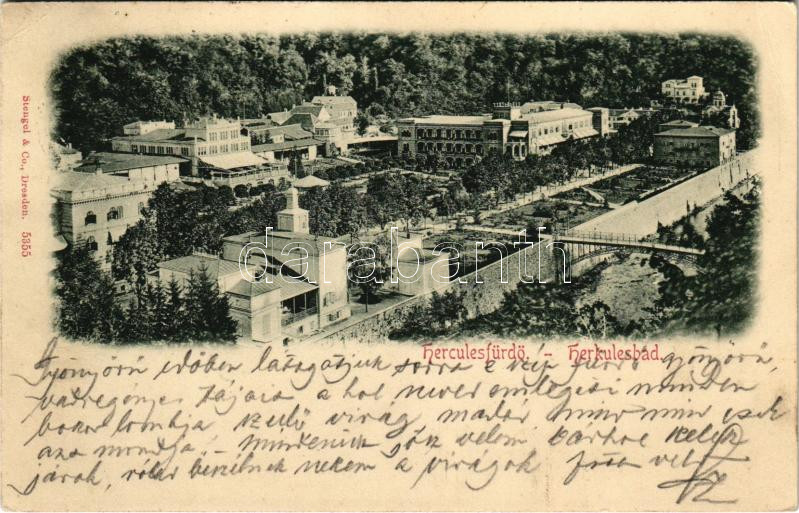 Stengel & Co., Dresden. 5355
darabanth
Herculesfürdö. - Herkulesbad.
Gyönyörü időben látogatjuk sorra e szép fürdő gyönyörü
vadregényes tájait a hol neved emlegeti minden
bokor lombja szellő virág madár
azt mondja, - mindenütt velem bárhol
járok, róla beszélnek nekem a virágok